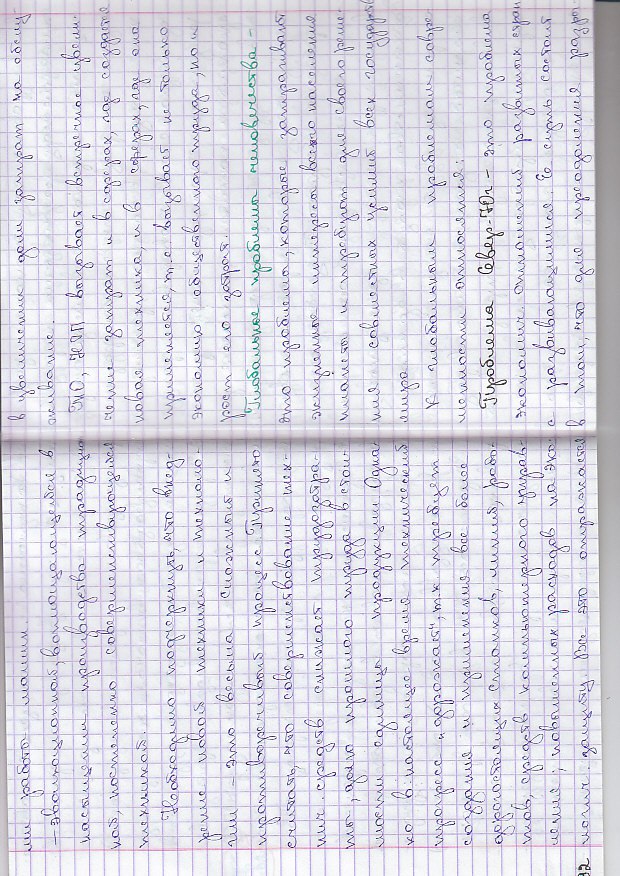 ми работы машин.
– эволюционной, воплощающейся в
насыщении производства традицион-
ной постепенно совершенствующейся
техникой.
Необходимо подчеркнуть, что внед-
рение новой техники и техноло-
гии – это весьма сложный и
противоречивый процесс. Принято
считать, что совершенствование тех-
нич. средств снижает трудозатра-
ты, долю прошлого труда в стои-
мости единицы продукции. Одна-
ко в настоящее время технический
прогресс „дорожает", т.к. требует
создания и применения все более
дорогостоящих станков, линий, робо-
тов, средств компьютерного управ-
ления; повышенных расходов на эко-
логич. защиту. Все это отражается
92
в увеличении доли затрат на обслу-
живание.
Т.о., НТП вызывает встречное увели-
чение затрат и в сферах, где создается
новая техника, и в сферах, где она
применяется, т.е. вызывает не только
экономию общественного труда, но и
рост его затрат.
Глобальные проблемы человечества –
это проблемы, которые затрагивают
жизненные интересы всего населения
планеты и требуют для своего реше-
ния совместных усилий всех государств
мира.
К глобальным проблемам совре-
менности относятся:
Проблема Север-Юг – это проблема
экономич. отношений развитых стран
с развивающимися. Ее суть состоит
в том, что для преодоления разры